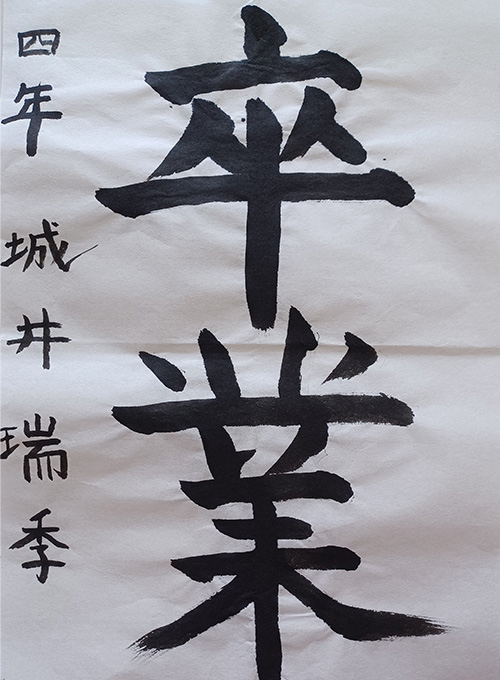 卒業
四年 城井瑞季